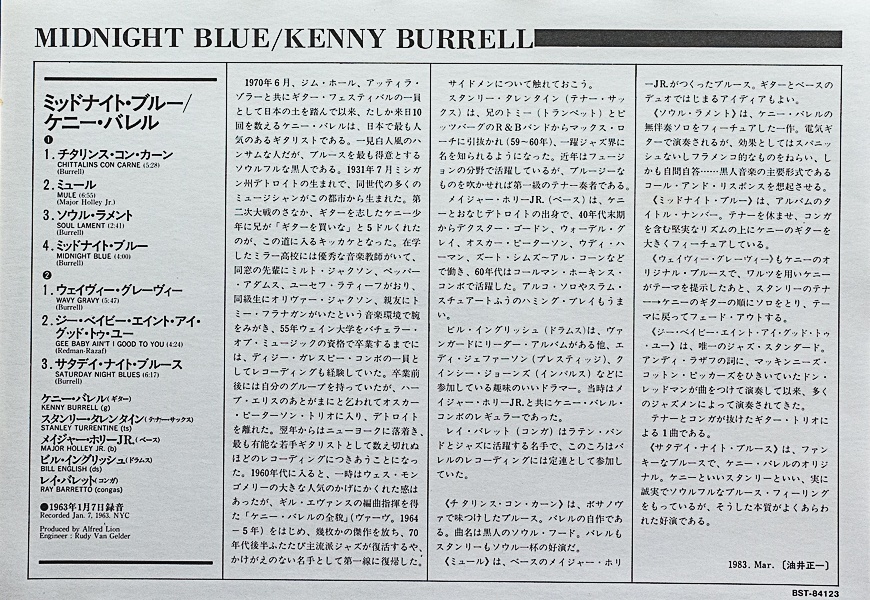 MIDNIGHT BLUE/KENNY BURRELL
ミッドナイト・ブルー/
ケニー・バレル
❶
1. チタリンス・コン・カーン
CHITTALINS CON CARNE (5:28)
(Burrell)
2. ミュール
MULE (6:55)
(Major Holley Jr.)
3. ソウル・ラメント
SOUL LAMENT (2:41)
(Burrell)
4. ミッドナイト・ブルー
MIDNIGHT BLUE (4:00)
(Burrell)
❷
1. ウェイヴィー・グレーヴィー
WAVY GRAVY (5:47)
(Burrell)
2. ジー・ベイビー・エイント・アイ・
グッド・トゥ・ユー
GEE BABY AIN'T I GOOD TO YOU (4:24)
(Redman-Razaf)
3. サタデイ・ナイト・ブルース
SATURDAY NIGHT BLUES (6:17)
(Burrell)
ケニー・バレル(ギター)
KENNY BURRELL (g)
スタンリー・タレンタイン(テナー・サックス)
STANLEY TURRENTINE (ts)
メイジャー・ホリーJR.(ベース)
MAJOR HOLLEY JR. (b)
ビル・イングリッシュ(ドラムス)
BILL ENGLISH (ds)
レイ・バレット(コンガ)
RAY BARRETTO (congas)
●1963年1月7日録音
Recorded Jan. 7, 1963. NYC
Produced by Alfred Lion
Engineer : Rudy Van Gelder
1970年6月、ジム・ホール、アッティラ・
ゾラーと共にギター・フェスティバルの一員
として日本の土を踏んで以来、たしか来日10
回を数えるケニー・バレルは、日本で最も人
気のあるギタリストである。一見白人風のハ
ンサムな人だが、ブルースを最も得意とする
ソウルフルな黒人である。1931年7月ミシガ
ン州デトロイトの生まれで、同世代の多くの
ミュージシャンがこの都市から生まれた。第
二次大戦のさなか、ギターを志したケニー少
年に兄が「ギターを買いな」と5ドルくれた
のが、この道に入るキッカケとなった。在学
したミラー高校には優秀な音楽教師がいて、
同窓の先輩にミルト・ジャクソン、ペッパー
・アダムス、ユーセフ・ラティーフがおり、
同級生にオリヴァー・ジャクソン、親友にト
ミー・フラナガンがいたという音楽環境で腕
をみがき、55年ウェイン大学をバチェラー・
オブ・ミュージックの資格で卒業するまでに
は、ディジー・ガレスピー・コンボの一員と
してレコーディングも経験していた。卒業前
後には自分のグループを持っていたが、ハー
ブ・エリスのあとがまにと乞われてオスカー
・ピーターソン・トリオに入り、デトロイト
を離れた。翌年からはニューヨークに落着き、
最も有能な若手ギタリストとして数え切れぬ
ほどのレコーディングにつきあうことになっ
た。1960年代に入ると、一時はウェス・モン
ゴメリーの大きな人気のかげにかくれた感は
あったが、ギル・エヴァンスの編曲指揮を得
た「ケニー・バレルの全貌」(ヴァーヴ。1964
－5年)をはじめ、幾枚かの傑作を放ち、70
年代後半ふたたび主流派ジャズが復活するや、
かけがえのない名手として第一線に復帰した。
サイドメンについて触れておこう。
スタンリー・タレンタイン(テナー・サッ
クス)は、兄のトミー(トランペット)とピ
ッツバーグのR&Bバンドからマックス・ロ
ーチに引抜かれ(59～60年)、一躍ジャズ界に
名を知られるようになった。近年はフュージ
ョンの分野で活躍しているが、ブルージーな
ものを吹かせれば第一級のテナー奏者である。
メイジャー・ホリーJR.(ベース)は、ケニ
ーとおなじデトロイトの出身で、40年代末期
からデクスター・ゴードン、ウォーデル・グ
レイ、オスカー・ピーターソン、ウディ・ハ
ーマン、ズート・シムズ=アル・コーンなど
で働き、60年代はコールマン・ホーキンス・
コンボで活躍した。アルコ・ソロやスラム・
スチュアートふうのハミング・プレイもうま
い。
ビル・イングリッシュ(ドラムス)は、ヴァ
ンガードにリーダー・アルバムがある他、エ
ディ・ジェファーソン(プレスティッジ)、ク
インシー・ジョーンズ(インパルス)などに
参加している趣味のいいドラマー。当時はメ
イジャー・ホリーJR.と共にケニー・バレル・
コンボのレギュラーであった。
レイ・バレット(コンガ)はラテン・バン
ドとジャズに活躍する名手で、このころはバ
レルのレコーディングには定連として参加し
ていた。
《チタリンス・コン・カーン》は、ボサノヴ
ァで味つけしたブルース。バレルの自作であ
る。曲名は黒人のソウル・フード。バレルも
スタンリーもソウル一杯の好演だ。
《ミュール》は、ベースのメイジャー・ホリ
ーJR.がつくったブルース。ギターとベースの
デュオではじまるアイディアもよい。
《ソウル・ラメント》は、ケニー・バレルの
無伴奏ソロをフィーチュアした一作。電気ギ
ターで演奏されるが、効果としてはスパニッ
シュないしフラメンコ的なものをねらい、し
かも自問自答……黒人音楽の主要形式である
コール・アンド・リスポンスを想起させる。
《ミッドナイト・ブルー》は、アルバムのタ
イトル・ナンバー。テナーを休ませ、コンガ
を含む堅実なリズムの上にケニーのギターを
大きくフィーチュアしている。
《ウェイヴィー・グレーヴィー》もケニーのオ
リジナル・ブルースで、ワルツを用いケニー
がテーマを提示したあと、スタンリーのテナ
ー→ケニーのギターの順にソロをとり、テー
マに戻ってフェード・アウトする。
《ジー・ベイビー・エイント・アイ・グッド・トゥ
・ユー》は、唯一のジャズ・スタンダード。
アンディ・ラザフの詞に、マッキンニーズ・
コットン・ピッカーズをひきいていたドン・
レッドマンが曲をつけて演奏して以来、多く
のジャズメンによって演奏されてきた。
テナーとコンガが抜けたギター・トリオに
よる1曲である。
《サタデイ・ナイト・ブルース》は、ファン
キーなブルースで、ケニー・バレルのオリジ
ナル。ケニーといいスタンリーといい、実に
誠実でソウルフルなブルース・フィーリング
をもっているが、そうした本質がよくあらわ
れた好演である。
1983. Mar. 〔油井正一〕
BST-84123